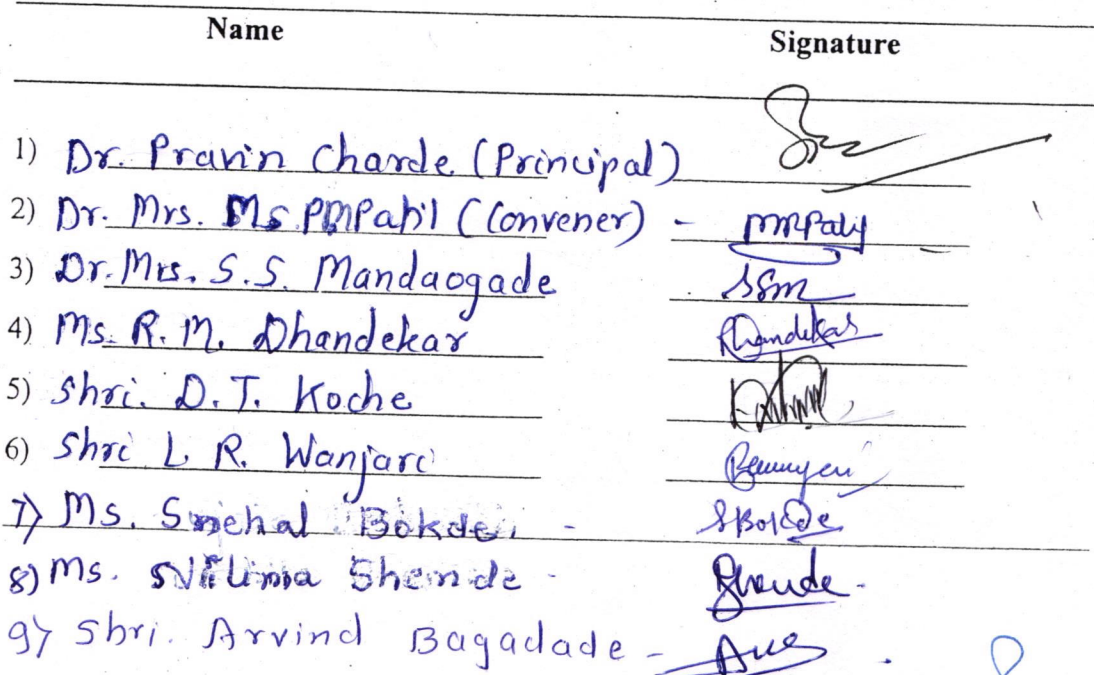 Name Signature
1) Dr. Pravin Charde (Principal)
2) Dr. Mrs. Ms. PMPatil (Convener) -
3) Dr. Mrs. S.S. Mandaogade SSM
4) Ms. R.M. Dhandekar Dhandekar
5) Shri. D.T. Koche
6) Shri L. R. Wanjari
7) Ms. Snehal Bokde. - SBokde
8) Ms. Nilima Shende - Shende -
9) Shri. Arvind Bagadade -